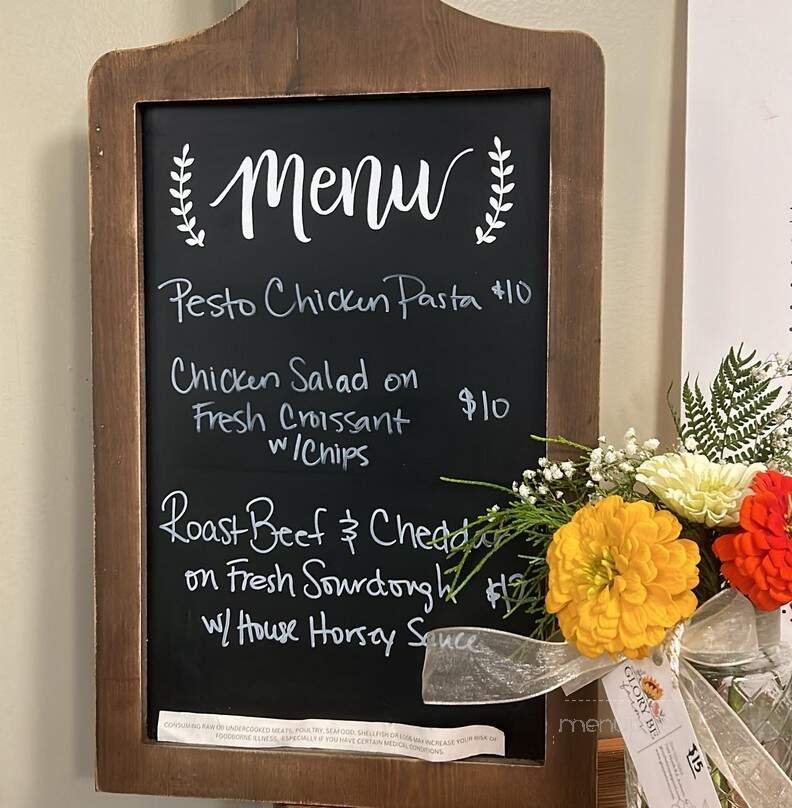 Menu
Pesto Chicken Pasta $10
Chicken Salad on
Fresh Croissant $10
w/Chips
Roast Beef & Cheddar
on Fresh Sourdough
w/ House Horsey Sauce
CONSUMING RAW OR UNDERCOOKED MEATS, POULTRY, SEAFOOD, SHELLFISH OR EGGS MAY INCREASE YOUR RISK OF
FOODBORNE ILLNESS, ESPECIALLY IF YOU HAVE CERTAIN MEDICAL CONDITIONS.
menu
GLORY BE
$15